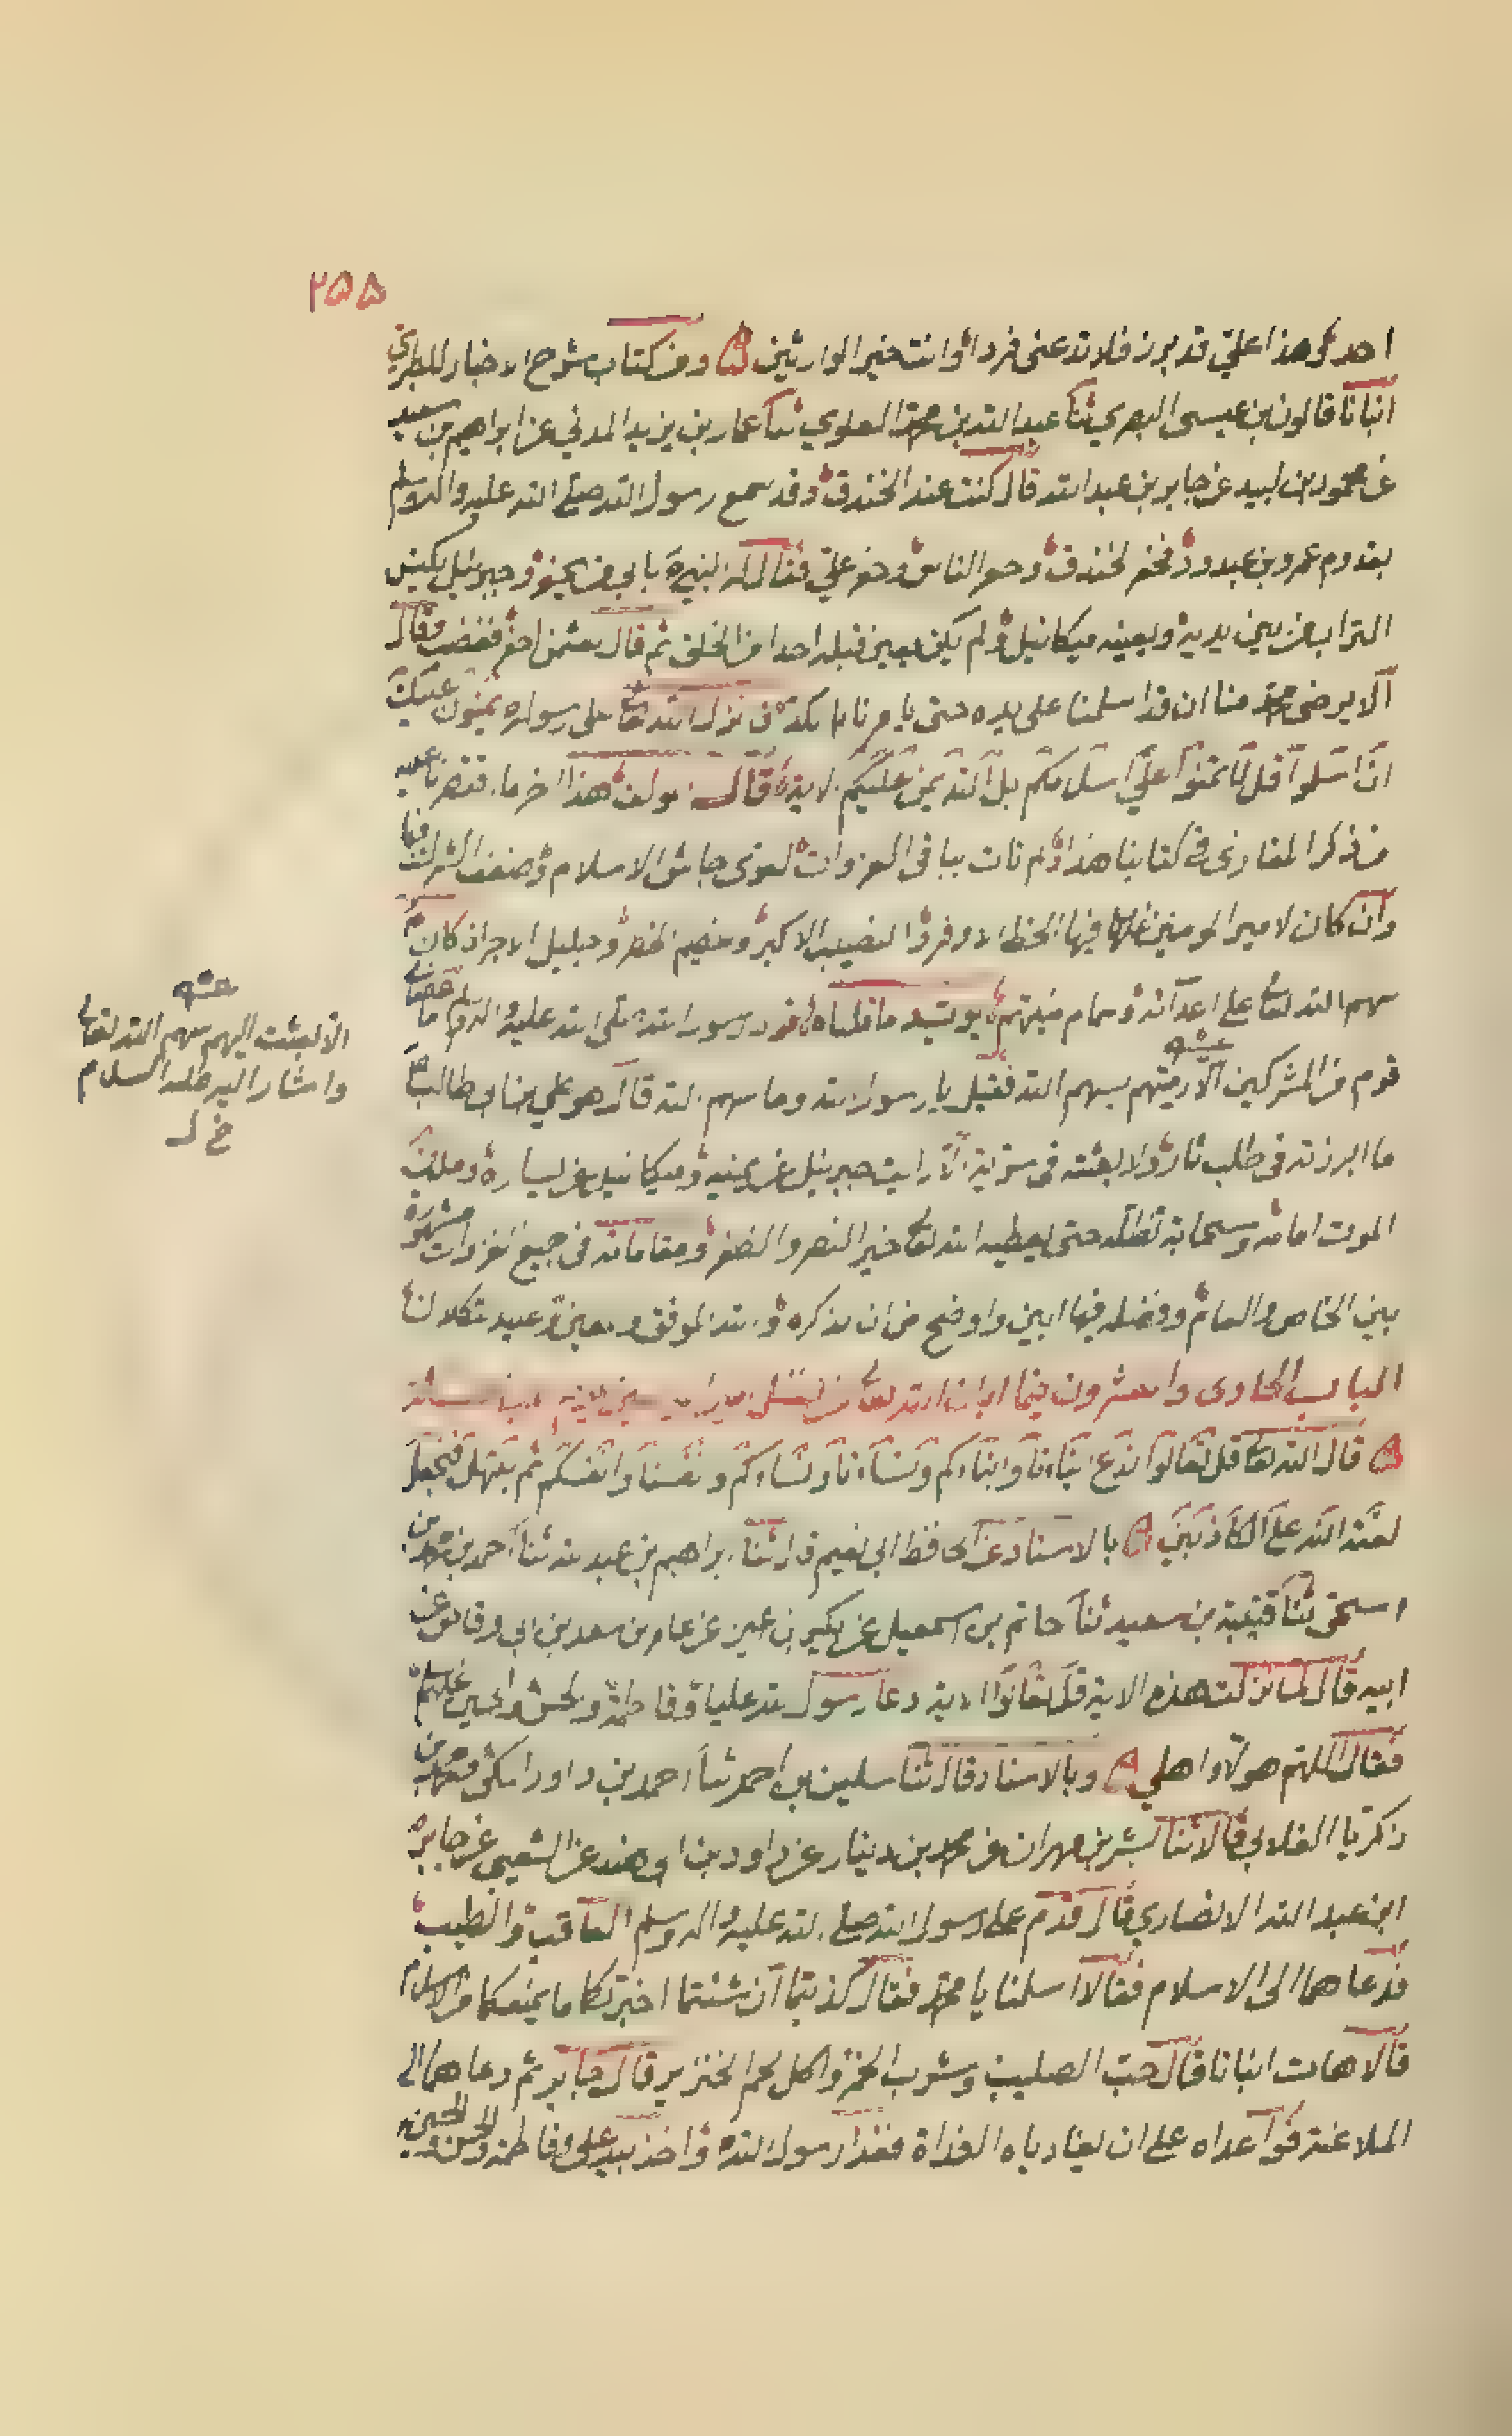 ٢٥٥
احد وهذا علي قد برز فلا تدعنى فردا وانت خير الوارثين ومن كتاب شرح الاخبار للطبري
انبانا قالون بن عيسى البصري ثنا عبد الله بن محمد العلوي ثنا عمار بن يزيد المدني عن ابراهيم بن سعيد
عن محمود بن لبيد عن جابر بن عبد الله قال كنت عند الخندق وقد سمع رسول الله صلى الله عليه واله وسلم
بقدوم عمرو بن عبد ود فحفر الخندق وحفر الناس وحفر علي فقال له النبي بابي من يحفر وجبرئيل يكنس
التراب من بين يديه ويعينه ميكائيل ولم يكن يعين قبله احدا من الخلق ثم قال لعثمن احفر فغضب وقال
الا يرضى محمد منا ان قد اسلمنا على يده حتى يامرنا بالكد فانزل الله تعا على رسوله يمنون عليك
ان اسلموا قل لا تمنوا علي اسلامكم بل الله يمن عليكم الاية قال المولف هذا اخر ما اقتصرنا عليه
من ذكر المغازى في كتابنا هذا ولم نات بباقى الغزوات لقوى جاش الاسلام وضعف الشرك فيها
وان كان لامير المومنين فيها الحظ الاوفر والنصيب الاكبر وعظيم الخطر وجليل الاجر اذ كان
سهم الله تعا على اعدائه وسمام منيتهم يوتيد ما قلناه ما ورد رسول الله صلى الله عليه واله وسلم ما عصانى
قوم من المشركين الا رميتهم بسهم الله فقيل يا رسول الله وما سهم الله قال هو علي بن ابي طالب
ما ابرزته فى طلب ثار ولا بعثته فى سرية الا رايت جبرئيل عن يمينه وميكائيل عن يساره وملك
الموت امامه وسحابة تظله حتى يعطيه الله تعا خير النصر والظفر ومقاماته فى جميع الغزوات مشهورة
بين الخاص والعام وفضله فيها ابين واوضح من ان نذكره والله الموفق والمعين وعليه تكلاننا
الباب الحادى والعشرون فيما ابانه الله تعا من فضل امير المومنين
قال الله تعا قل تعالوا ندع ابناءنا وابناءكم ونساءنا ونساءكم وانفسنا وانفسكم ثم نبتهل فنجعل
لعنة الله على الكاذبين بالاسناد عن الحافظ ابي نعيم قال ثنا ابراهيم بن عبد الله ثنا احمد بن محمد بن
اسحق ثنا قتيبة بن سعيد ثنا حاتم بن اسمعيل عن بكير بن عن عامر بن سعد بن ابي وقاص عن
ابيه قال لما نزلت هذه الاية قل تعالوا الاية دعا رسول الله عليا وفاطمة والحسن والحسين عليهم
فقال اللهم هولاء اهلي وبالاسناد قال ثنا سليمن بن احمد ثنا احمد بن داود المكى ومحمد بن
زكريا الغلابي قالا ثنا بشر بن مهران عن محمد بن دينار عن داود بن ابى هند عن الشعبي عن جابر
ابن عبد الله الانصاري قال قدم على رسول الله صلى الله عليه واله وسلم العاقب والطيب
فدعاهما الى الاسلام فقالا اسلمنا يا محمد فقال كذبتما ان شئتما اخبرتكما ما يمنعكما من الاسلام
قالا هات انبانا قال حب الصليب وشرب الخمر واكل لحم الخنزير قال جابر ثم دعاهما الى
الملاعنة فواعداه على ان يغادياه الغداة فغدا رسول الله واخذ بيد علي وفاطمة والحسن والحسين
الا بعثت اليهم سهم الله تعالى
واشار اليه عليه السلام
خ ل